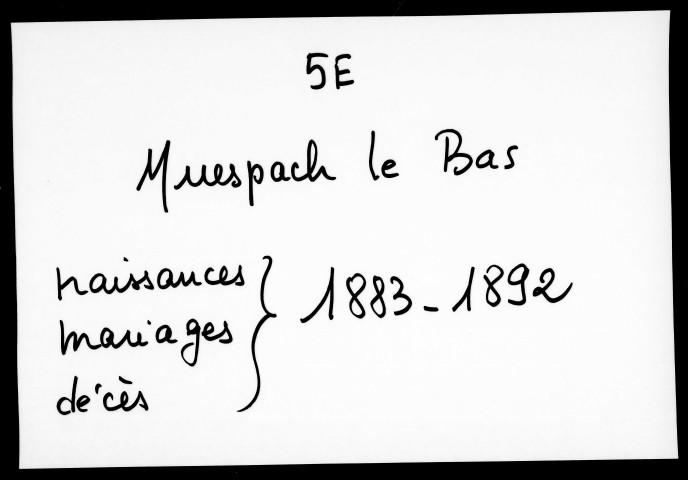 5E
Muespach le Bas
naissances
mariages
décès
} 1883-1892